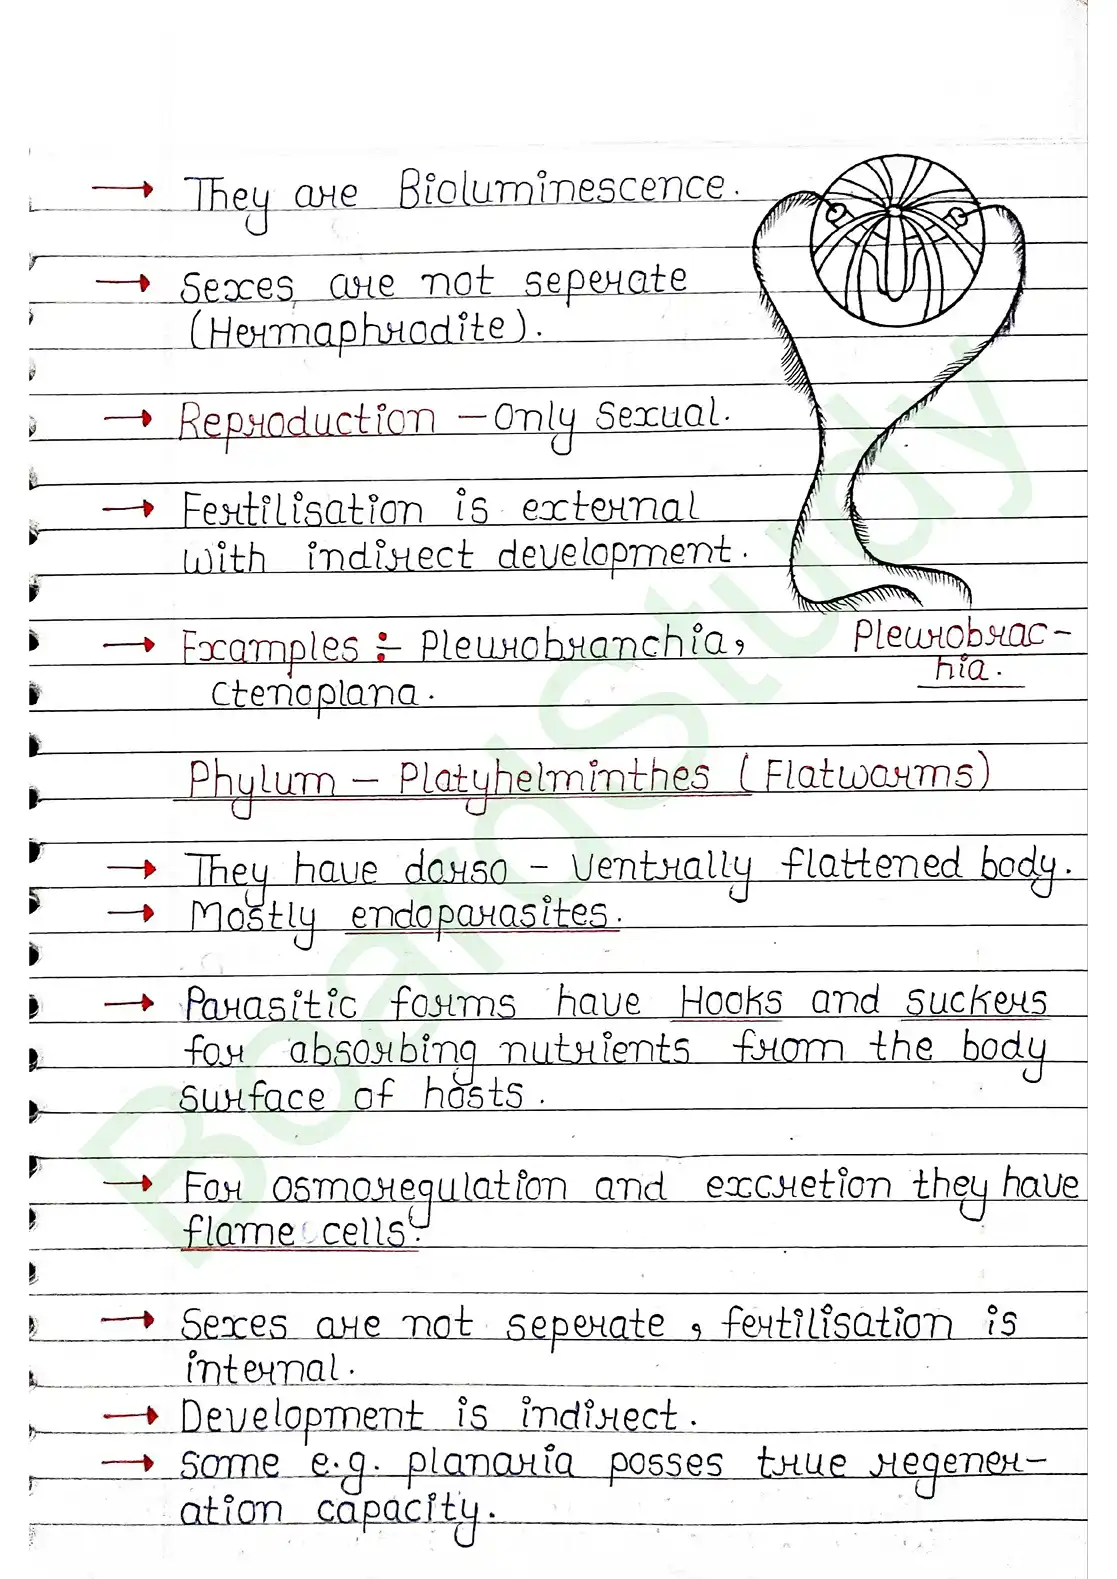 → They are Bioluminescence.
→ Sexes are not seperate
(Hermaphrodite).
→ Reproduction – Only Sexual.
→ Fertilisation is external
with indirect development.
→ Examples :- Pleurobranchia,
Ctenoplana.
Pleurobrac-
hia.
Phylum – Platyhelminthes (Flatworms)
→ They have dorso - Ventrally flattened body.
→ Mostly endoparasites.
→ Parasitic forms have Hooks and suckers
for absorbing nutrients from the body
surface of hosts.
→ For osmoregulation and excretion they have
flame cells.
→ Sexes are not seperate, fertilisation is
internal.
→ Development is indirect.
→ Some e.g. planaria posses true regener-
ation capacity.
BoardStudy